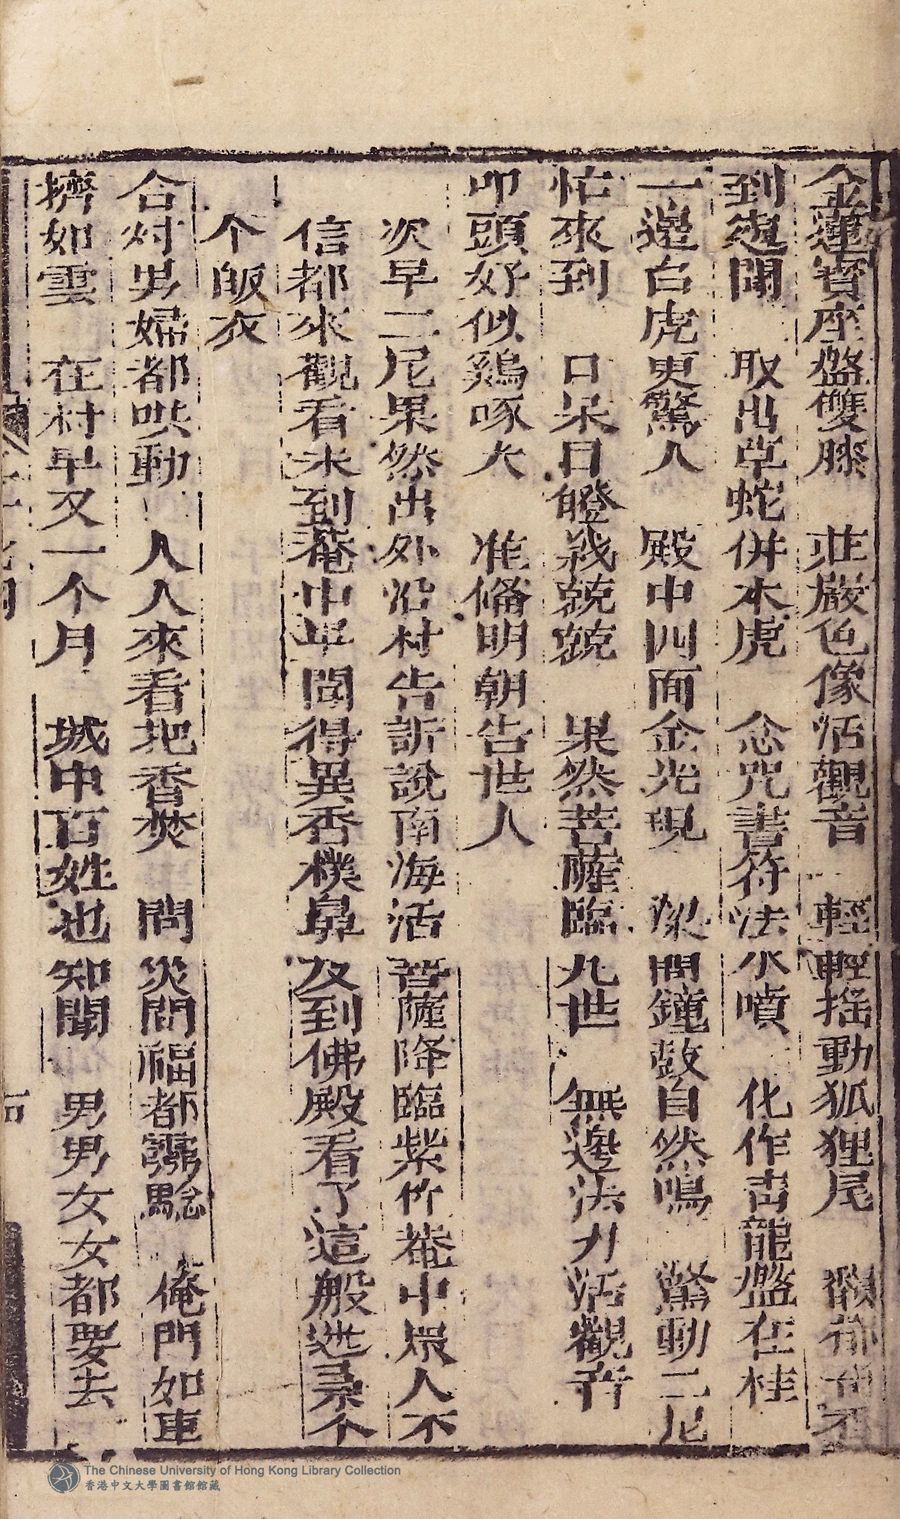 金蓮寳座盤雙膝　莊嚴色像活觀音　輕輕揺動狐狸尾
到邉開　取出草蛇併木虎　念咒書符法水噴　化作青龍盤在桂
一邉白虎更驚人　殿中四面金光現　梁間鐘鼓自然鳴　驚動二尼
忙來到　口呆目瞪戰兢兢　果然菩薩臨凡世　無邉法力活觀音
叩頭好似鷄啄米　准偹明朝告世人
次早二尼果然出外沿村告訴說南海活菩薩降臨紫竹菴中眾人不
信都來觀看未到菴中早聞得異香樸鼻及到佛殿看了這般
个皈衣
合村男婦都哄動　人人來看把香焚　問災問福都灵騐　俺門如車
擠如雲　在村早又一个月　城中百姓也知聞　男男女女都要去
The Chinese University of Hong Kong Library Collection
香港中文大學圖書館館藏